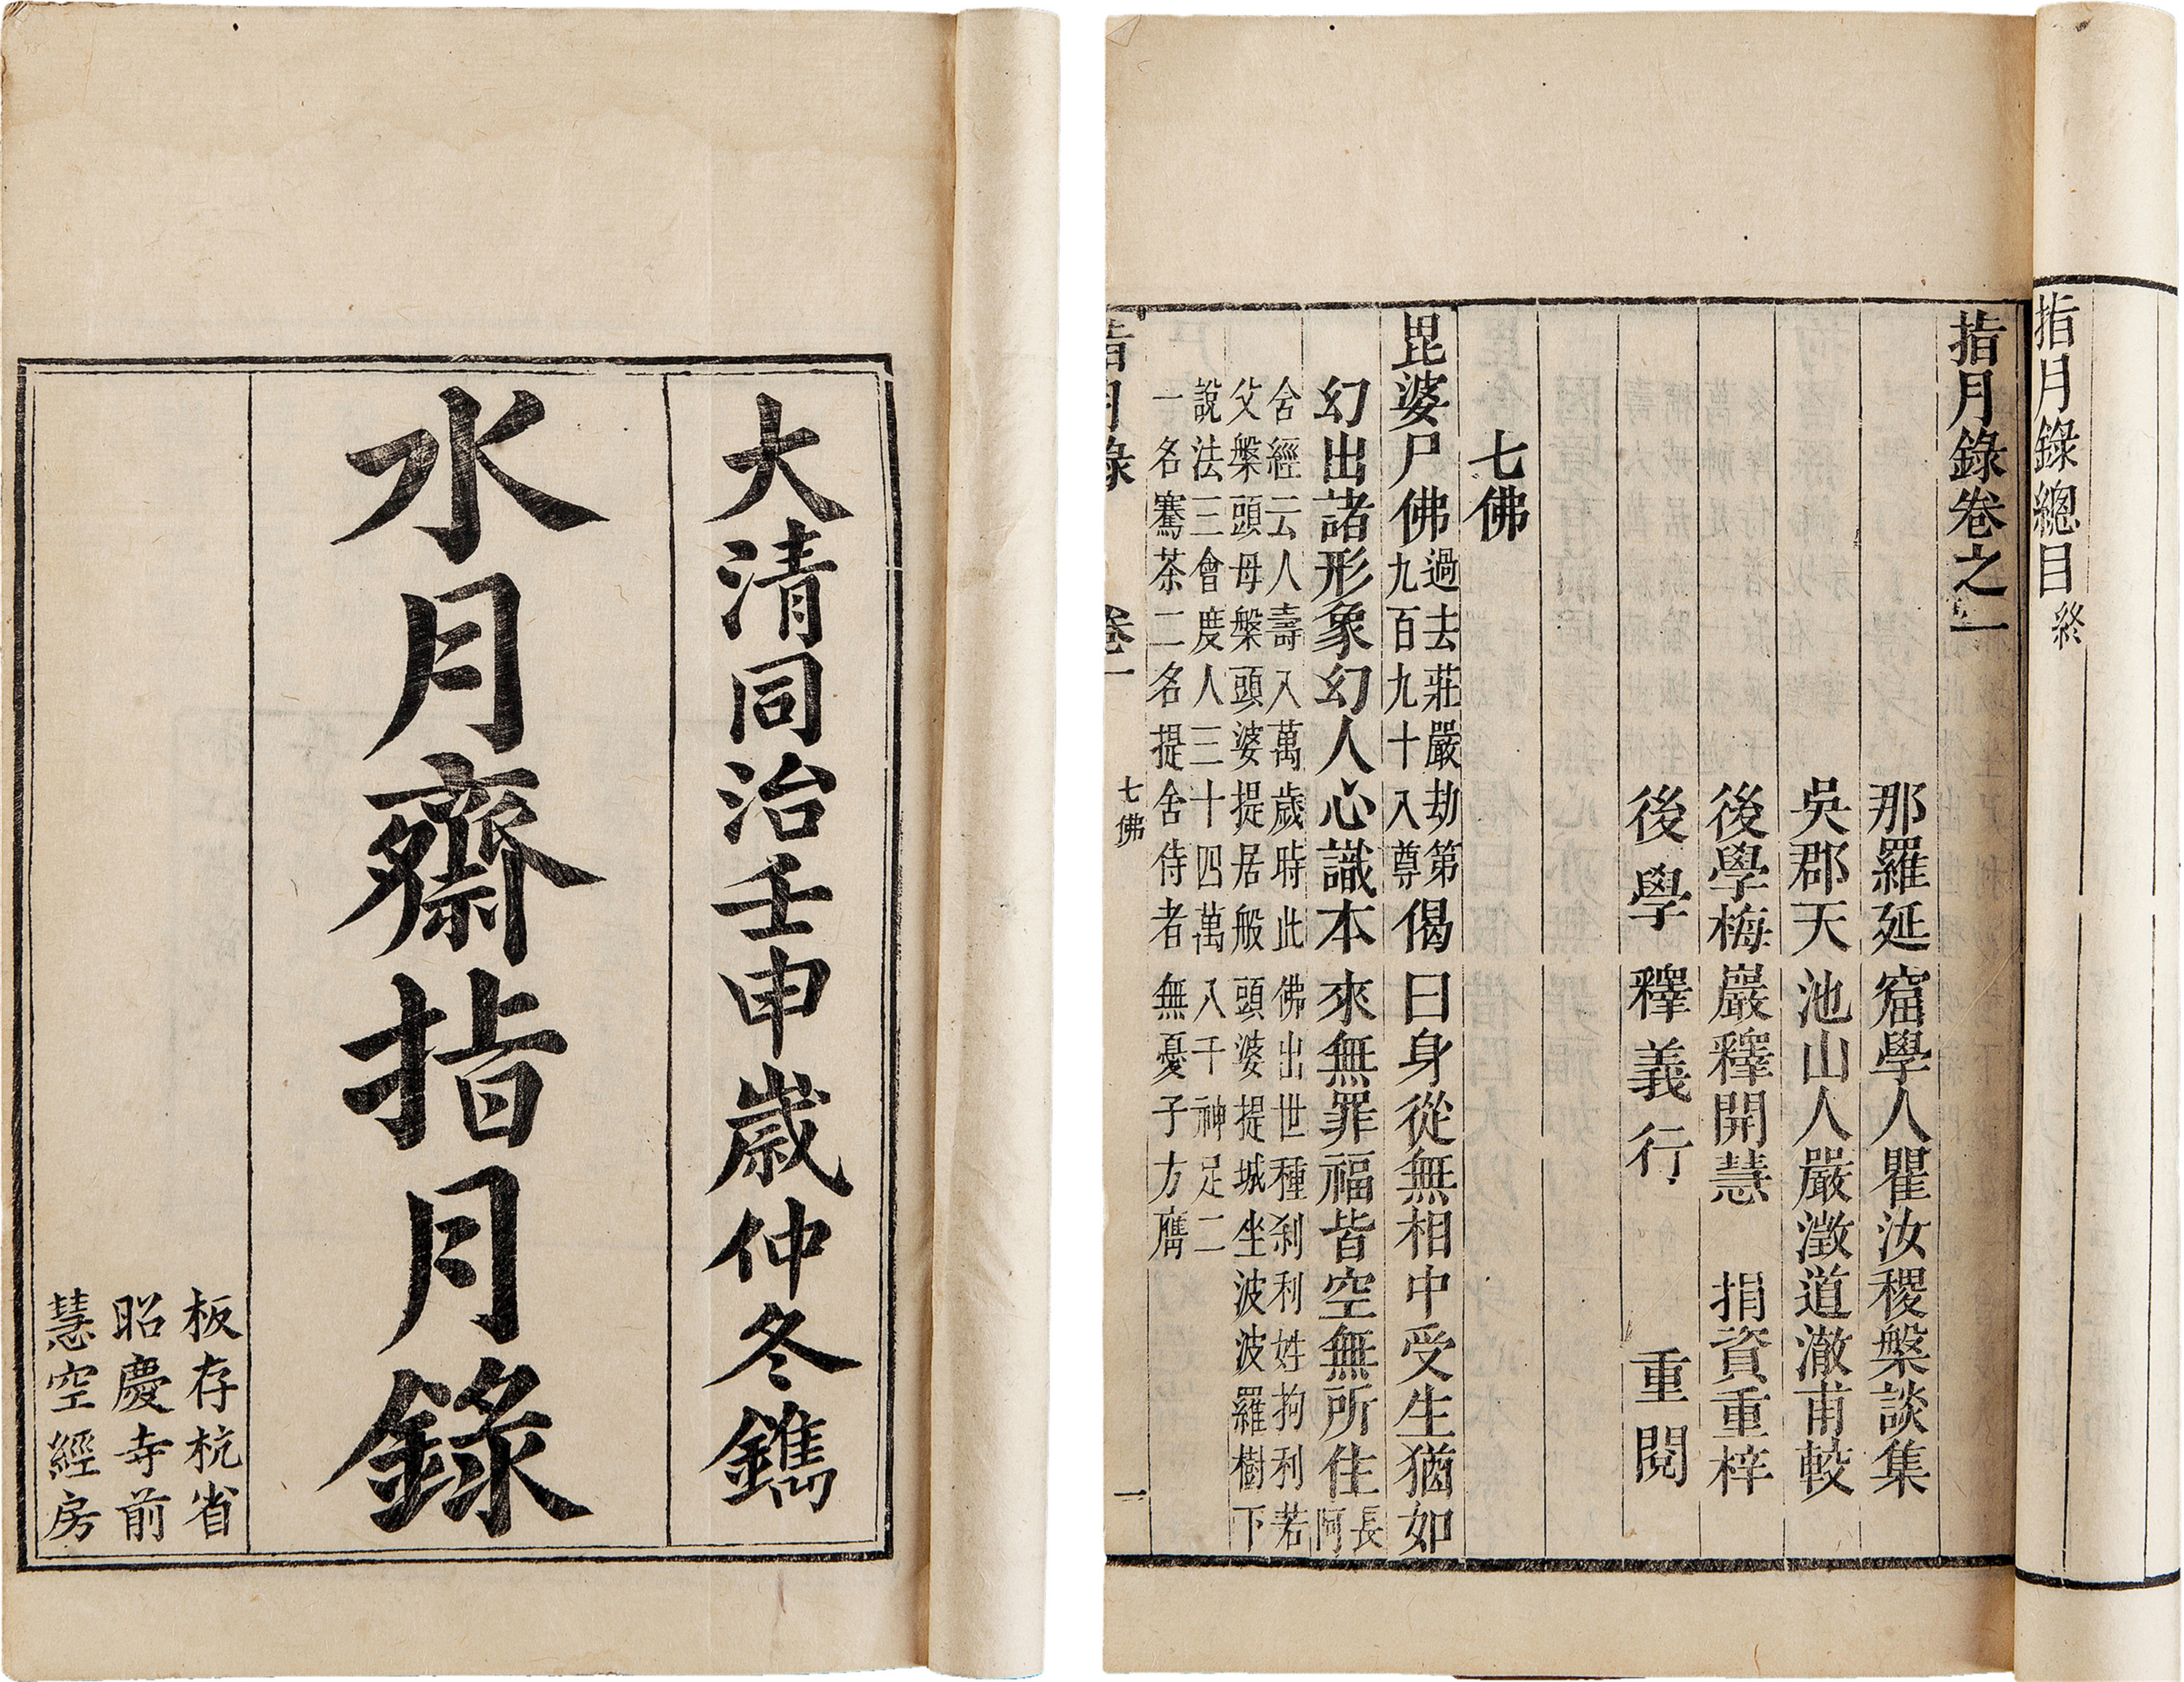 大清同治壬申歲仲冬鐫
水月齋指月錄
板存杭省
昭慶寺前
慧空經房
指月錄總目終
指月錄卷之一
那羅延窟學人瞿汝稷槃談集
吳郡天池山人嚴澂道澈甫較
後學梅巖釋開慧 捐資重梓
後學釋義行 重閱
七佛
毘婆尸佛過去莊嚴劫第九百九十八尊偈曰身從無相中受生猶如
幻出諸形象幻人心識本來無罪福皆空無所住長阿
含經云人壽八萬歲時此佛出世種剎利姓拘利若
父槃頭母槃頭婆提居般頭婆提城坐波波羅樹下
說法三會度人三十四萬八千神足二
一名騫茶二名提舍侍者無憂子方膺
指月錄 卷一 七佛 一